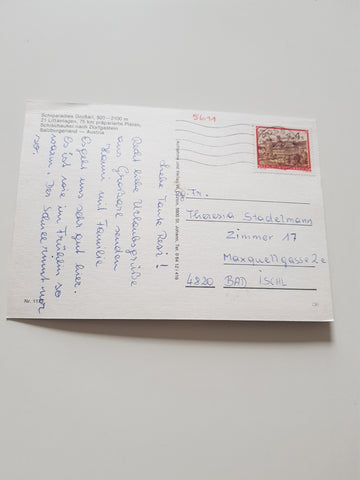 Schiparadies Großarl, 920 – 2100 m
21 Liftanlagen, 75 km präparierte Pisten,
Schischaukel nach Dorfgastein
Salzburgerland — Austria
Liebe Tante Resi!
Recht liebe Urlaubsgrüße
aus Großarl senden
Hanni mit Familie
Es geht uns sehr gut hier.
Es ist wie im Frühling so
warm. Der Schnee rinnt nur
so.
5611
Fr.
Theresia Stadelmann
Zimmer 17
Maxquellgasse 2e
4820 BAD ISCHL